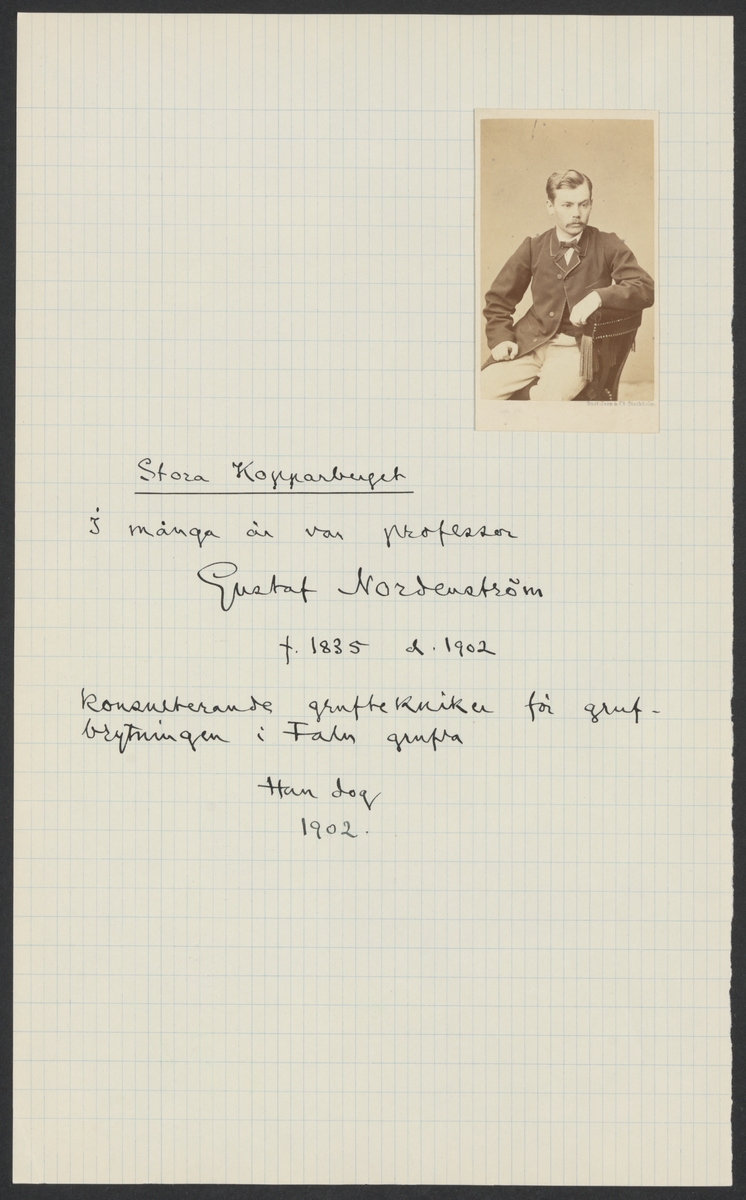 Stora Kopparberget
I många år var professor
Gustaf Nordenström
f. 1835 d. 1902
konsulterande gruftekniker för gruf-
brytningen i Falu grufva
Han dog
1902.